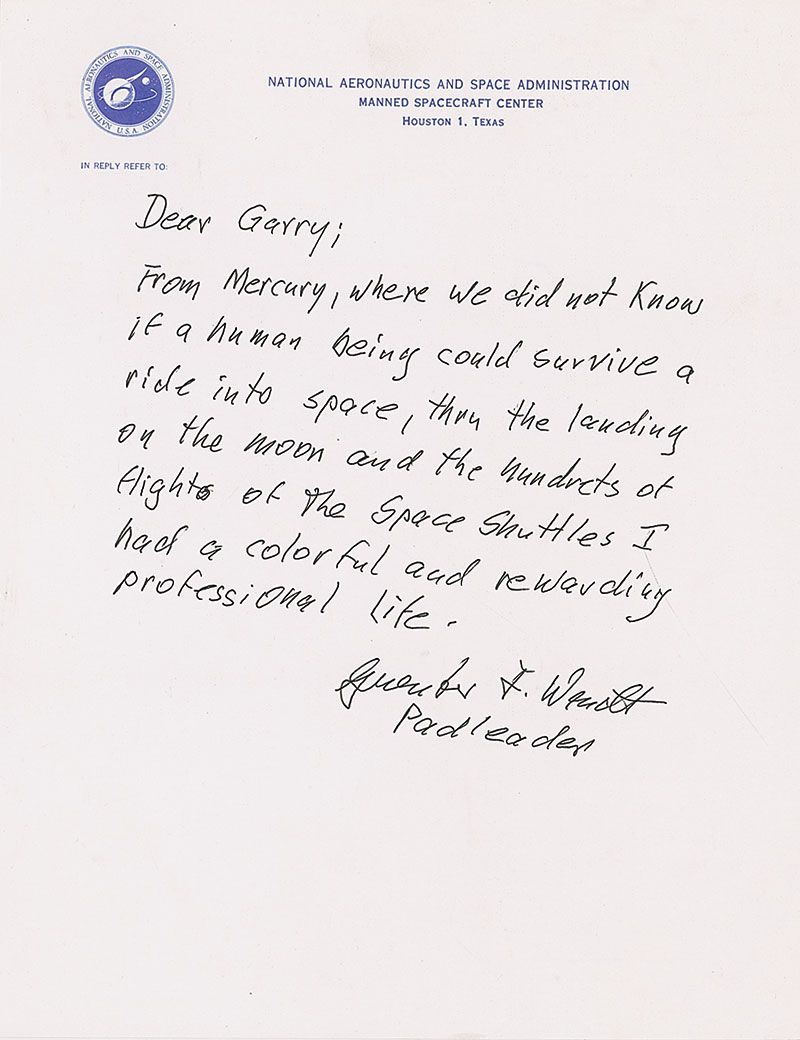 NATIONAL AERONAUTICS AND SPACE ADMINISTRATION
U.S.A.
NATIONAL AERONAUTICS AND SPACE ADMINISTRATION
MANNED SPACECRAFT CENTER
HOUSTON 1, TEXAS
IN REPLY REFER TO:
Dear Garry;
From Mercury, where we did not Know
if a human being could survive a
ride into space, thru the landing
on the moon and the hundrets of
flights of the Space Shuttles I
had a colorful and rewarding
professional life.
Guenter F. Wendt
Padleader